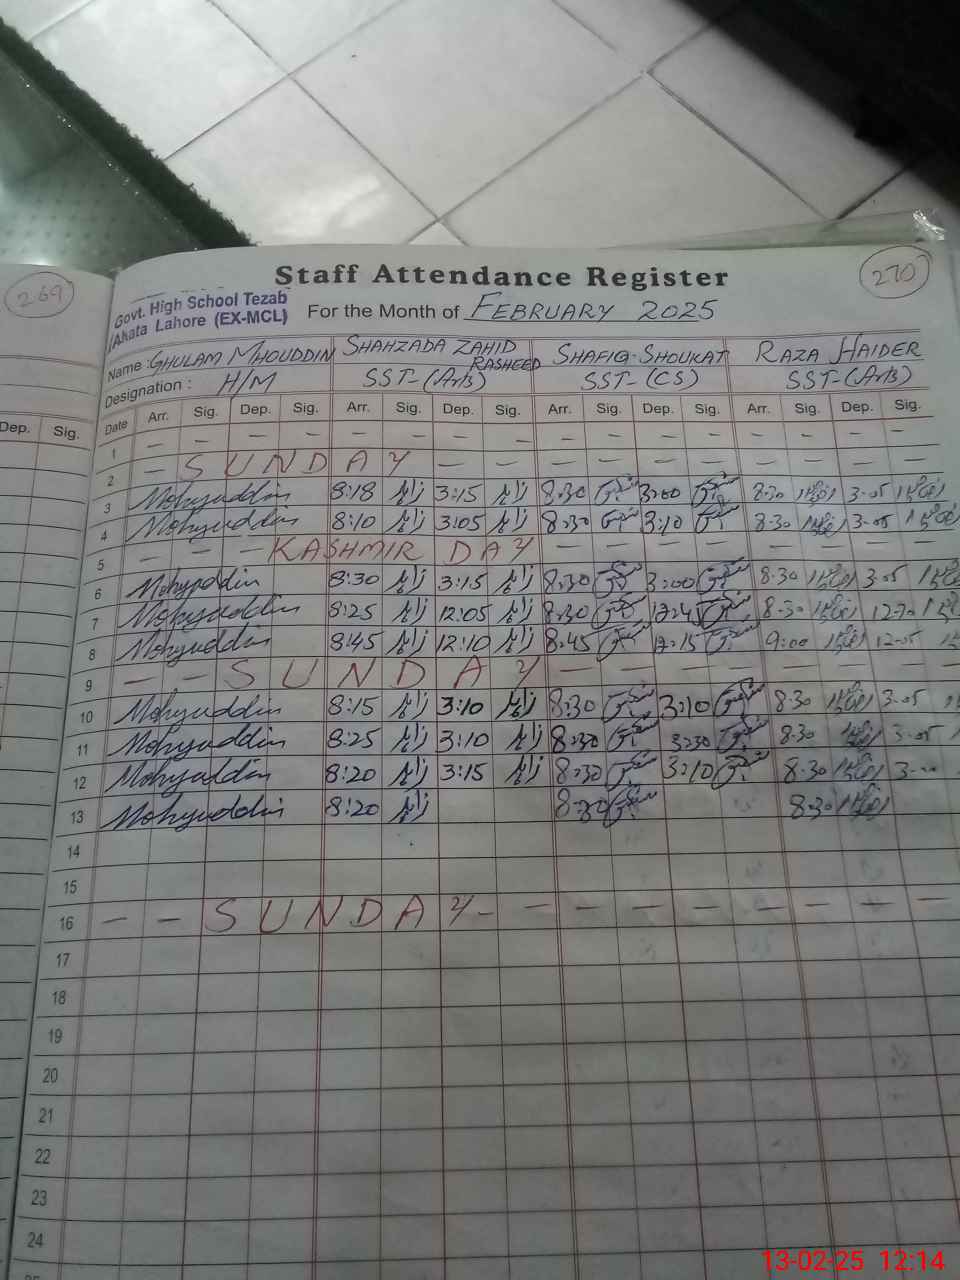 269
270
Staff Attendance Register
Govt. High School Tezab
Ahata Lahore (EX-MCL)
For the Month of FEBRUARY 2025
Name : GHULAM MHOUDDIN SHAHZADA ZAHID RASHEED SHAFIQ-SHOUKAT RAZA HAIDER
Designation : H/M SST-(Arts) SST-(CS) SST-(Arts)
Dep. Sig.
Date Arr. Sig. Dep. Sig. Arr. Sig. Dep. Sig. Arr. Sig. Dep. Sig. Arr. Sig. Dep. Sig.
1 — — — — — — — — — — — — — — —
2 — SUNDAY — — — — — — — — —
3 Mohyuddin 8:18 3:15 8:30 3:00 8:30 3-05
4 Mohyuddin 8:10 3:05 8:30 3:10 8-30 3-05
5 — — — KASHMIR DAY — — — — — — —
6 Mohyuddin 8:30 3:15 8:30 3:00 8-30 3-05
7 Mohyuddin 8:25 12:05 8:30 12:45 8-30
8 Mohyuddin 8:45 12:10 8:45 12:15 9:00 12-05
9 — — SUNDAY — — — — — — —
10 Mohyuddin 8:15 3:10 8:30 3:10 8-30 3-05
11 Mohyuddin 8:25 3:10 8:30 3:30 8-30 3-05
12 Mohyuddin 8:20 3:15 8:30 3:10 8-30
13 Mohyuddin 8:20 8:30 8-30
14
15
16 — — SUNDAY — — — — — — — — —
17
18
19
20
21
22
23
24
13-02-25 12:14